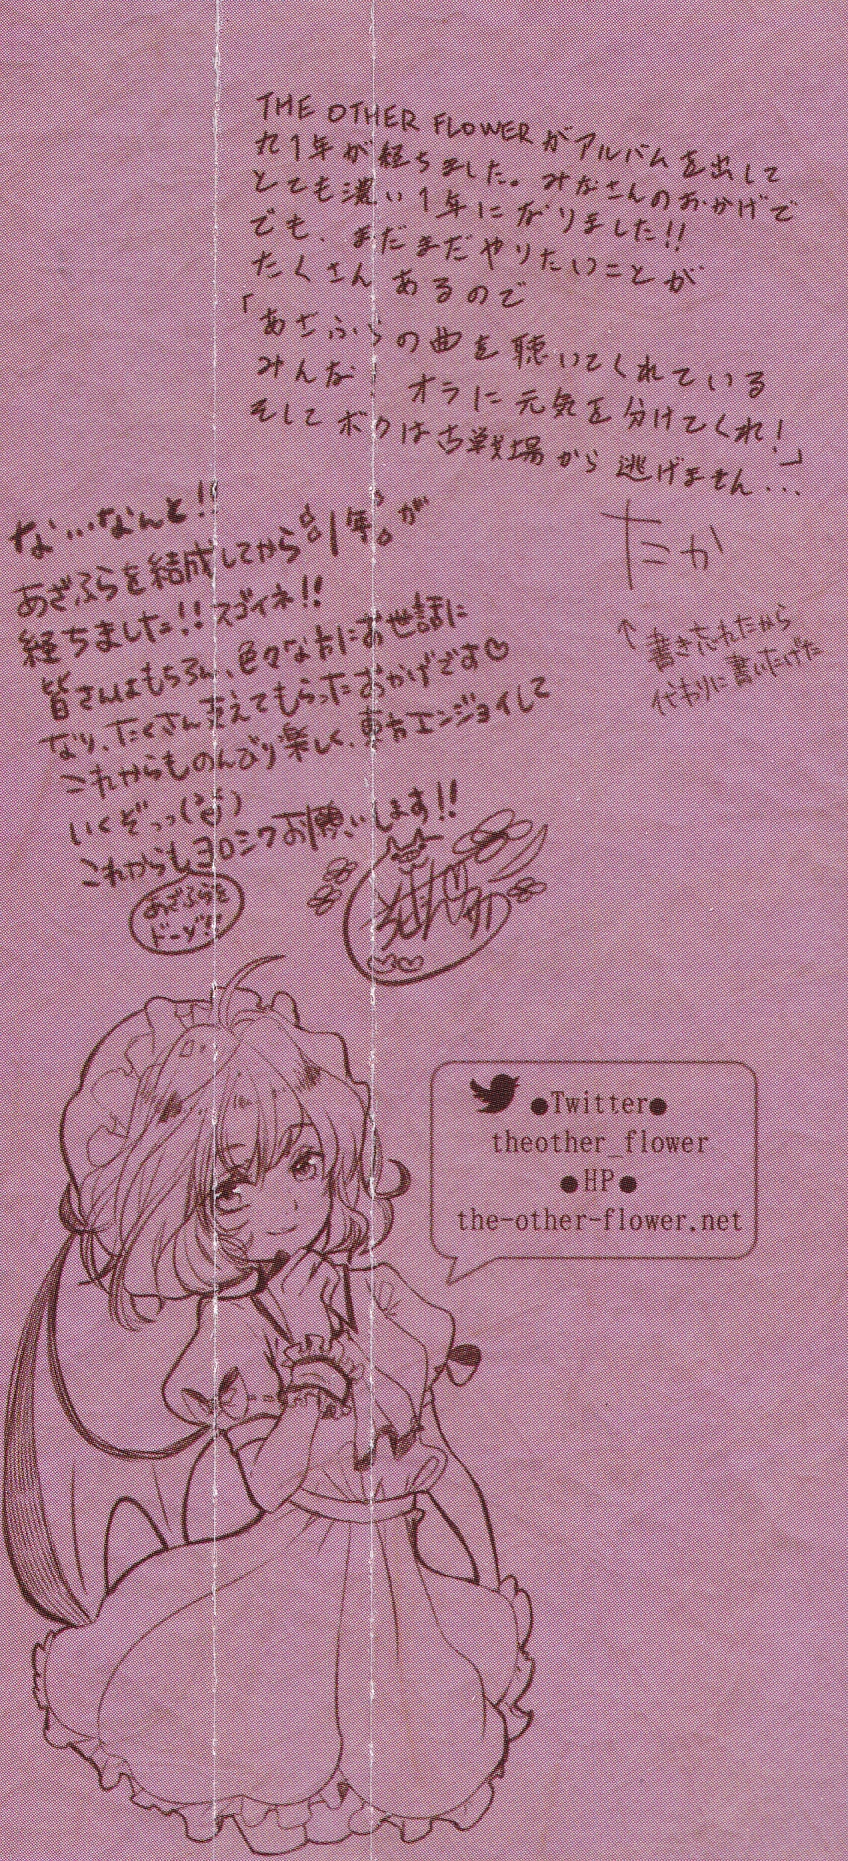 THE OTHER FLOWERがアルバムを出して
丸1年が経ちました。みなさんのおかげで
とても濃い1年になりました!!
でも、まだまだやりたいことが
たくさんあるので
「あざふらの曲を聴いてくれている
みんな! オラに元気を分けてくれ!」
そしてボクは古戦場から逃げません...
たか
↑書き忘れたから
代わりに書いたげた
な...なんと!!
あざふらを結成してから1年が
経ちました!!スゴイネ!!
皆さんはもちろん、色々な方にお世話に
なり、たくさん支えてもらったおかげです♡
これからものんびり楽しく、東方エンジョイして
いくぞっっ
これからもヨロシクお願いします!!
あざふらを
ドーゾ!!
●Twitter●
theother_flower
●HP●
the-other-flower.net